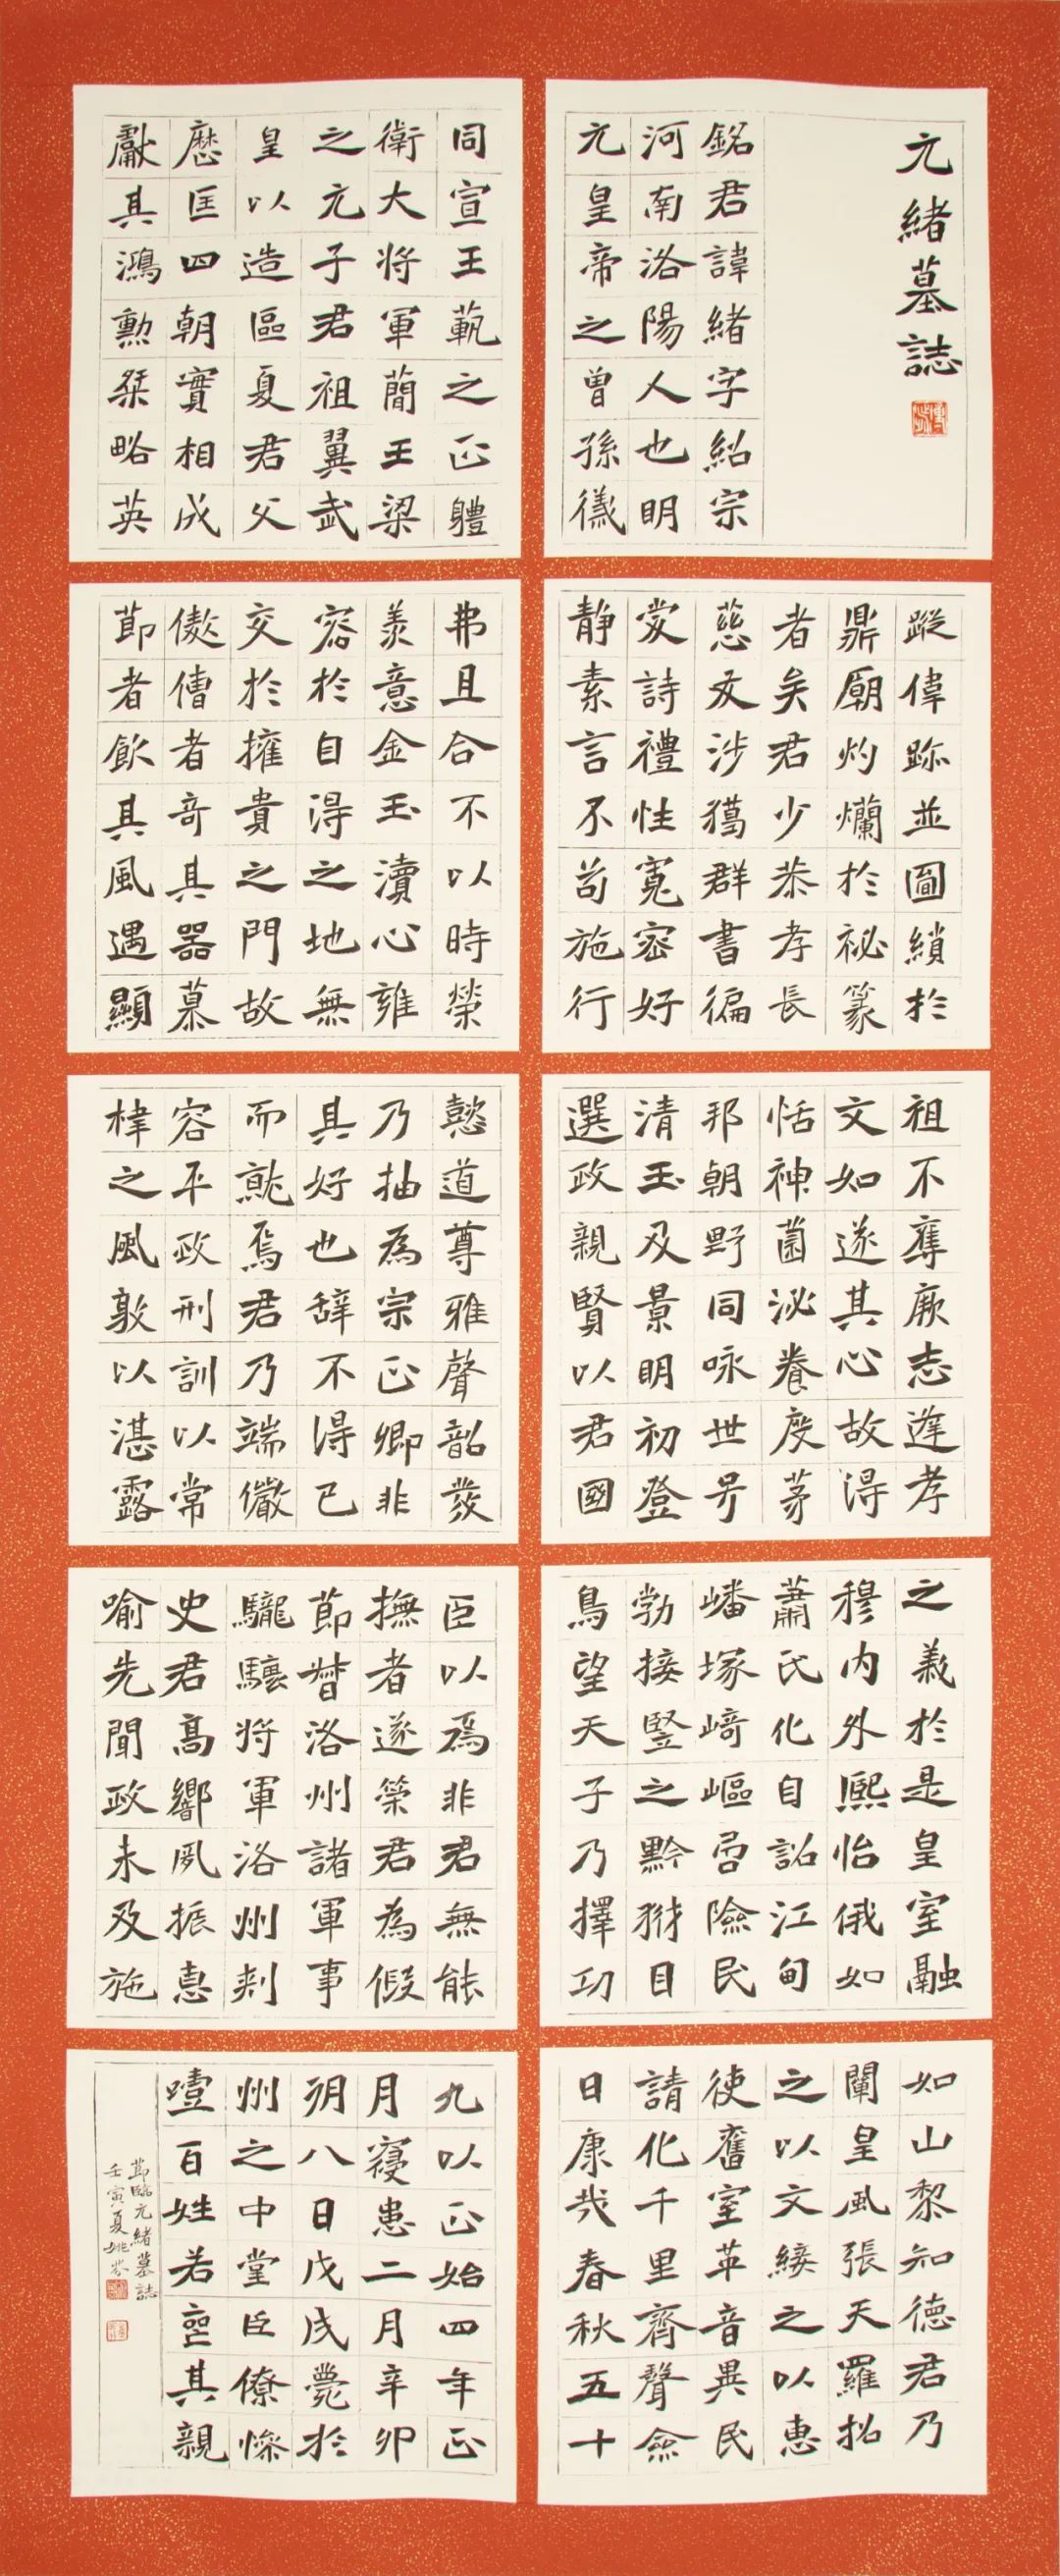 元緒墓誌
銘君諱緒字紹宗
河南洛陽人也明
元皇帝之曾孫儀
同宣王範之正體
衛大將軍簡王梁
之元子君祖翼武
皇以造區夏君父
歷匡四朝實相成
獻其鴻勳桀略英
蹤偉跡並圖績於
鼎廟灼爛於祕篆
者矣君少恭孝長
慈友涉獦群書徧
愛詩禮性寬密好
靜素言不苟施行
弗且合不以時榮
羨意金玉瀆心雍
容於自得之地無
交於擁貴之門故
傲僐者奇其器慕
節者飲其風遇顯
祖不奪厥志逢孝
文如遂其心故得
恬神園泌養度茅
邦朝野同咏世号
清玉及景明初登
選政親賢以君國
懿道尊雅聲韶發
乃抽為宗正卿非
其好也辭不得已
而就焉君乃端儼
容平政刑訓以常
棣之風敦以湛露
之義於是皇室融
穆內外熙怡俄如
蕭氏化自詔江甸
嶓塚崎嶇險民
勃接豎之黔豺目
鳥望天子乃擇功
臣以焉非君無能
撫者遂榮君為假
節督洛州諸軍事
龍驤將軍洛州刺
史君高響夙振惠
喻先聞政未及施
如山黎知德君乃
闡皇風張天羅招
之以文綏之以惠
使舊室革音異民
請化千里齊聲僉
日康哉春秋五十
九以正始四年正
月寢患二月辛卯
朔八日戊戌薨於
州之中堂臣僚慘
噎百姓若喪其親
節臨元緒墓誌
壬寅夏姚